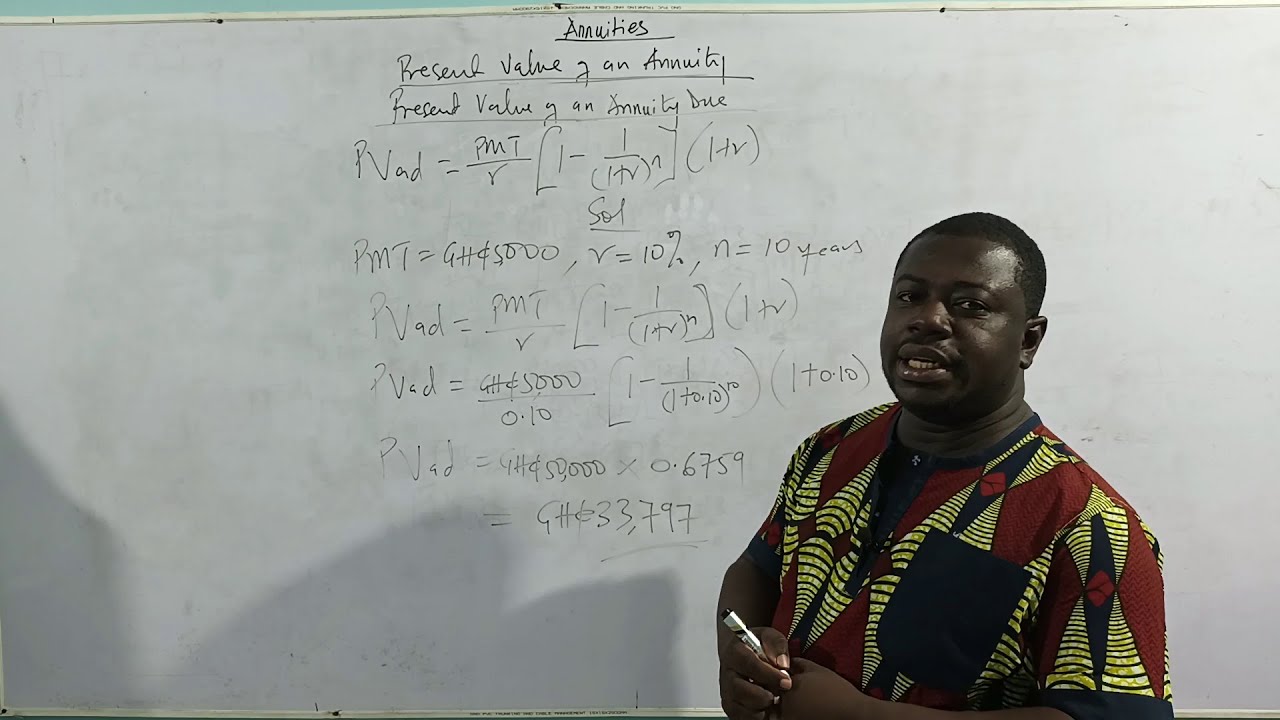 Annuities
Present Value of an Annuity
Present Value of an Annuity Due
PVad = PMT/r [1 - 1/(1+r)^n] (1+r)
Sol
PMT = GH¢5,000, r = 10%, n = 10 years
PVad = PMT/r [1 - 1/(1+r)^n] (1+r)
PVad = GH¢5,000/0.10 [1 - 1/(1+0.10)^10) (1+0.10)
PVad = GH¢50,000 × 0.6759
= GH¢33,797